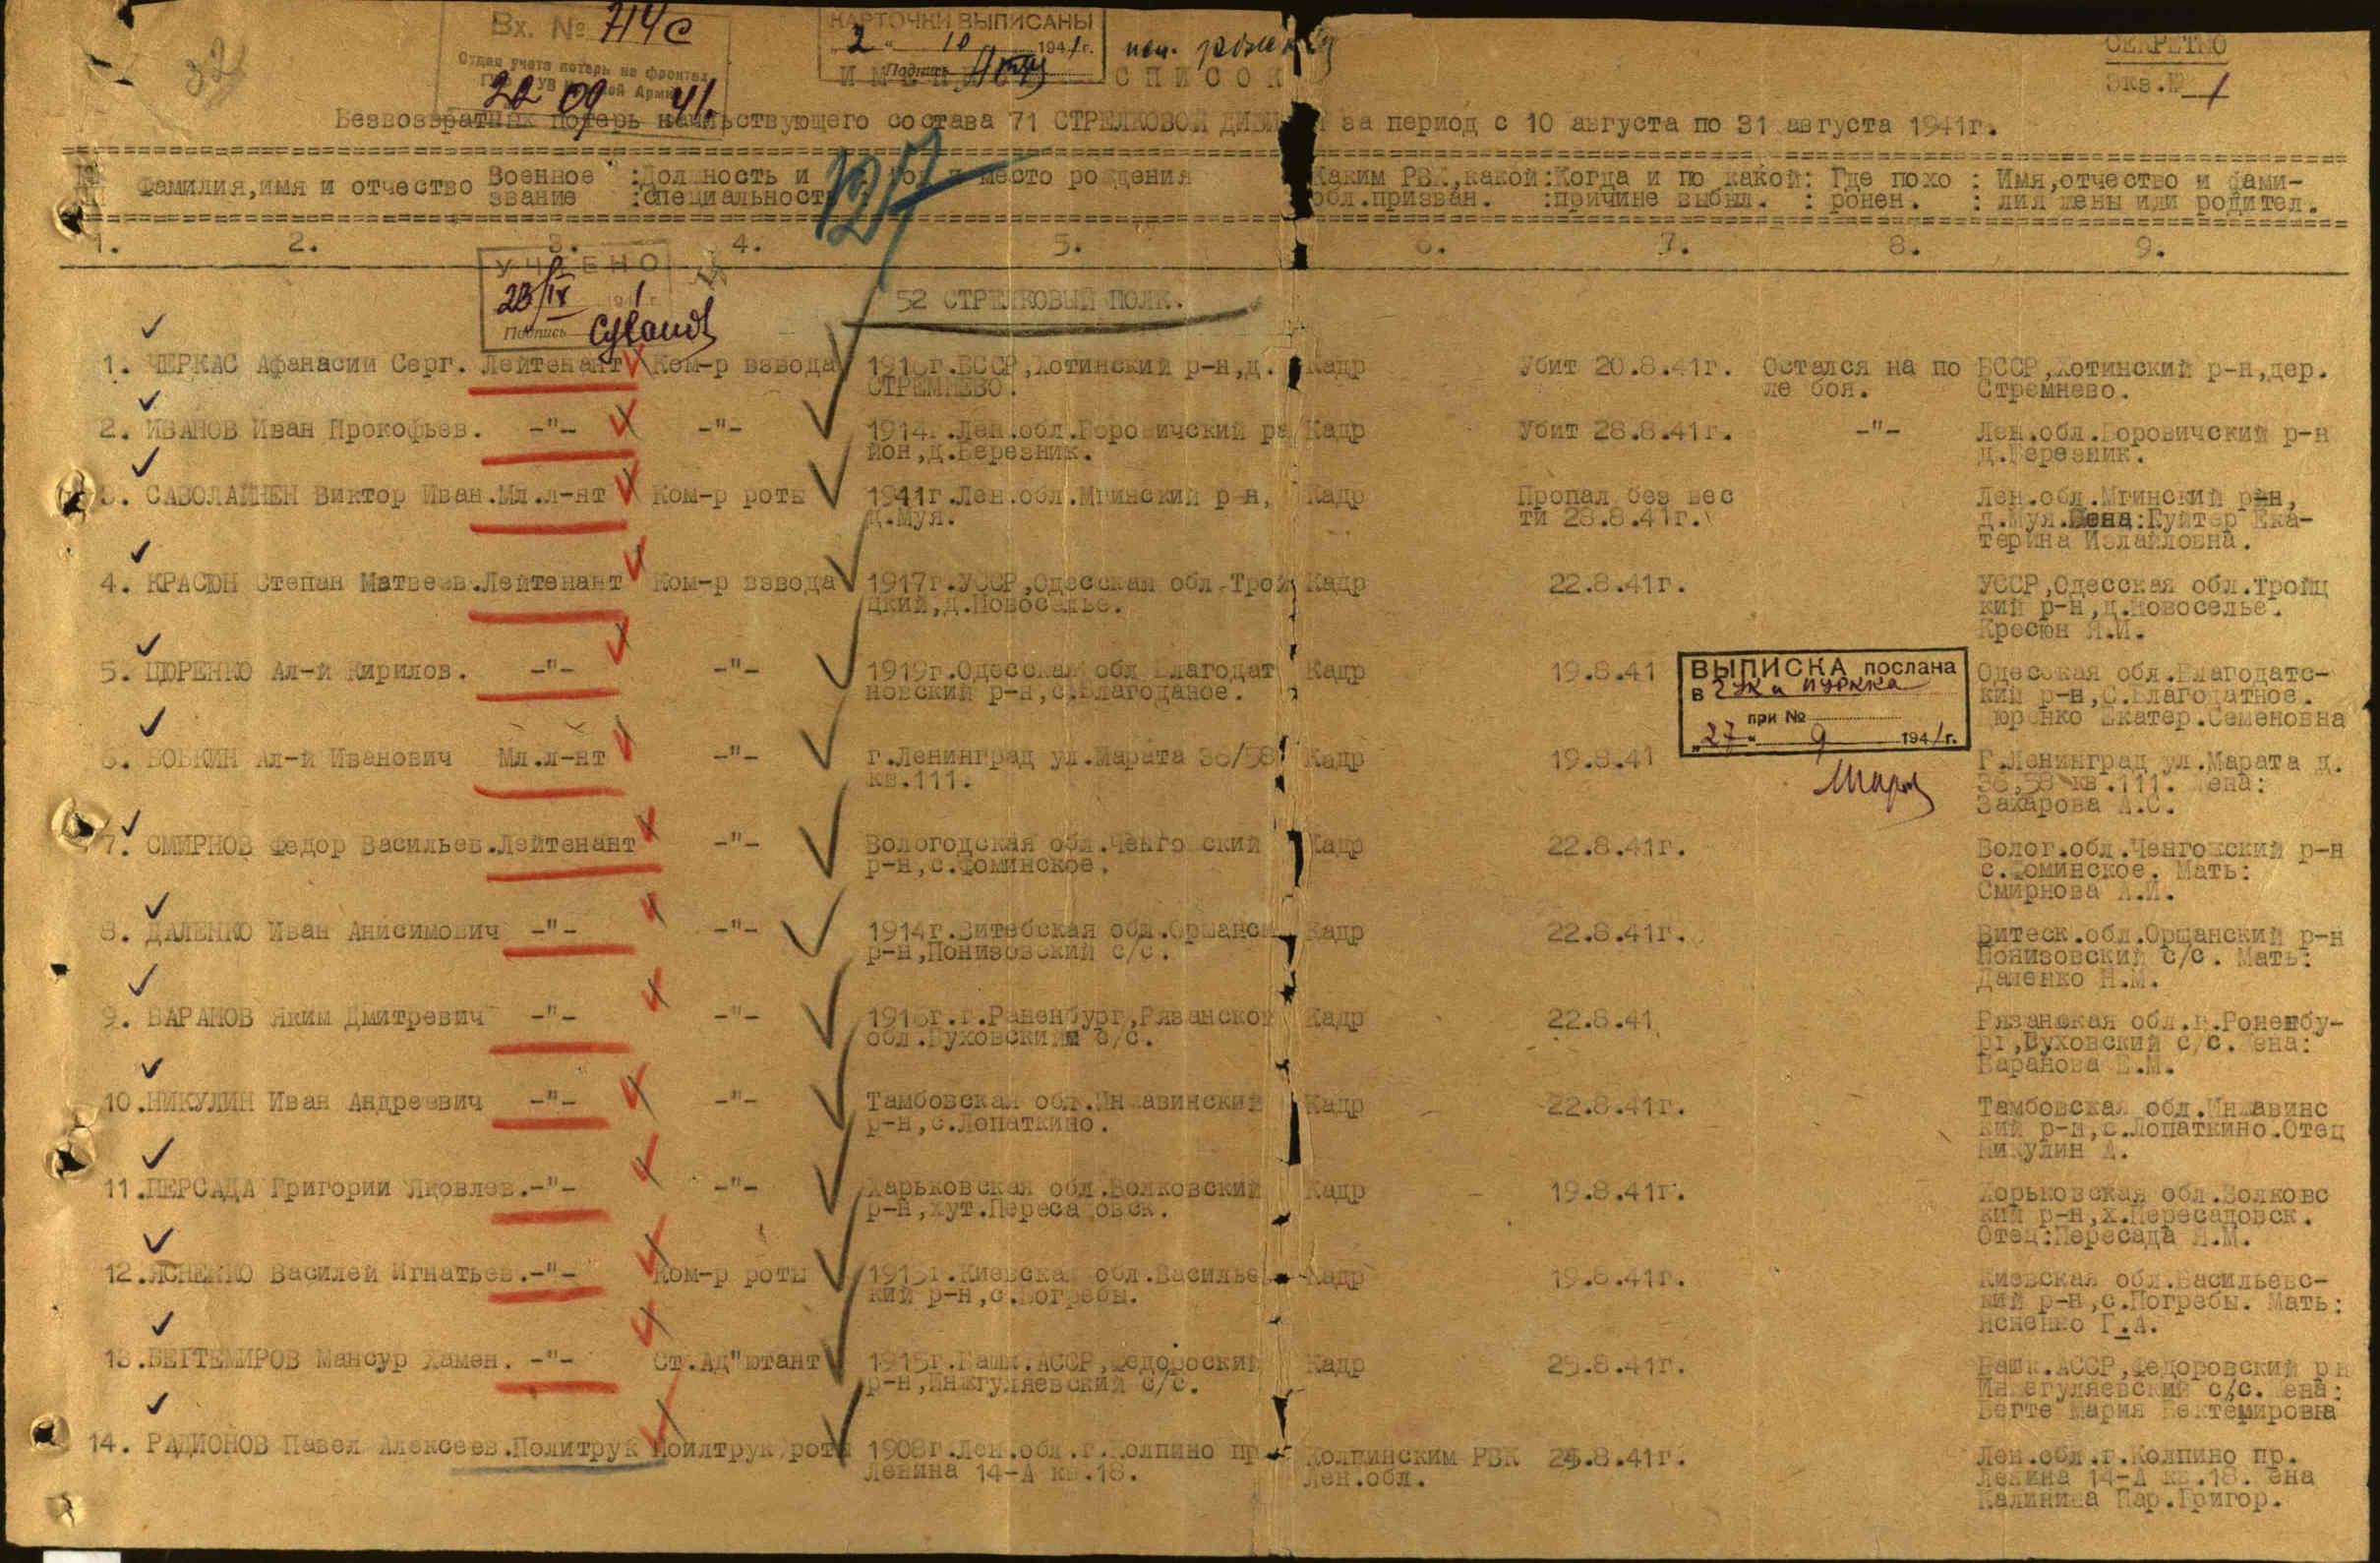 Вх. № 714с
Отдел учета потерь на фронтах
22 09 41.
КАРТОЧКИ ВЫПИСАНЫ
2 " 10 1941г.
Подпись
СЕКРЕТНО
Экз.№ 1
32
СПИСОК
Безвозвратных потерь начальствующего состава 71 СТРЕЛКОВОЙ за период с 10 августа по 31 августа 1941г.
Фамилия,имя и отчество Военное звание :Должность и специальность место рождения Каким РВК,какой обл.призван. :Когда и по какой причине выбыл. : Где похо ронен. : Имя,отчество и фами- лия жены или родител.
1. 2. 3. 4. 5. 6. 7. 8. 9.
УЧТЕНО
23/IX 1
Подпись
127
52 СТРЕЛКОВЫЙ ПОЛК.
1. ЧЕРКАС Афанасии Серг. Лейтенант Ком-р взвода 191 г.БССР,Хотинский р-н,д. Кадр Убит 20.8.41г. Остался на по БССР,Хотинский р-н,дер.
СТРЕМНЕВО. ле боя. Стремнево.
2. ИВАНОВ Иван Прокофьев. -"- -"- 1914г.Лен.обл.Боровичский ра Кадр Убит 28.8.41г. -"- Лен.обл.Боровичский р-н
йон,д.Березник. д.Березник.
3. САВОЛАЙНЕН Виктор Иван.Мл.л-нт Ком-р роты 1941г.Лен.обл.Мгинский р-н, Кадр Пропал без вес Лен.обл.Мгинский р-н,
д.Муя. ти 28.8.41г. д.Муя.Жена:Гуйтер Ека-
терина Измайловна.
4. КРАСЮН Степан Матвеев.Лейтенант Ком-р взвода 1917г.УССР,Одесская обл.Трой Кадр 22.8.41г. УССР,Одесская обл.Тройц
цкий,д.Новоселье. кий р-н,д.Новоселье.
Кресюн Я.И.
5. ЦЮРЕНКО Ал-й Кирилов. -"- -"- 1919г.Одесская обл Благодат Кадр 19.8.41 Одесская обл.Благодатс-
новский р-н,с.Благоданое. кий р-н,С.Благодатное.
юренко Екатер.Семеновна
ВЫПИСКА послана
в
при №
"27" 9 1941г.
6. БОБКИН Ал-й Иванович Мл.л-нт -"- г.Ленинград ул.Марата 36/58 Кадр 19.8.41 Г.Ленинград ул.Марата д.
кв.111. 36,58 кв.111. ена:
Захарова А.С.
7. СМИРНОВ Федор Васильев.Лейтенант -"- Вологодская обл.Ченго ский Кадр 22.8.41г. Волог.обл.Ченговский р-н
р-н,с.Фоминское. с.Фоминское. Мать:
Смирнова А.И.
8. ДАЛЕНКО Иван Анисимович -"- -"- 1914г.Витебская обл.Оршанск Кадр 22.8.41г. Витеск.обл.Оршанский р-н
р-н,Понизовский с/с. Понизовский с/с. Мать:
Даленко Н.М.
9. БАРАНОВ Яким Дмитревич -"- -"- 191 г.г.Раненбург,Рязанской Кадр 22.8.41 Рязанская обл.г.Роненбу-
обл.Буховский с/с. рг,Буховский с/с. ена:
Баранова Е.М.
10.НИКУЛИН Иван Андреевич -"- -"- Тамбовская обл.Инжавинский Кадр 22.8.41г. Тамбовская обл.Инжавинс
р-н,с.Лопаткино. кий р-н,с.Лопаткино.Отец
Никулин А.
11.ПЕРСАДА Григории Яковлев.-"- -"- Харьковская обл.Волковский Кадр 19.8.41г. Хорьковская обл.Волковс
р-н,хут.Переса овск. кий р-н,х.Пересадовск.
Отец:Пересада Я.М.
12.ЯСНЕНКО Василей Игнатьев.-"- Ком-р роты 191 г.Киевская обл.Василье Кадр 19.8.41г. Киевская обл.Васильевс-
кий р-н,с.Погребы. кий р-н,с.Погребы. Мать:
Ясненко Г.А.
13.БЕГТЕМИРОВ Мансур Хамен. -"- Ст.Ад"ютант 1915г.Башк.АССР,Федороский Кадр 25.8.41г. Башк.АССР,Федоровский р н
р-н,Инжгуляевский с/с. Инжегуляевский с/с. ена:
Бегте Мария Бектемировна
14. РАДИОНОВ Павел Алексеев.Политрук Поилтрук роты 1908г.Лен.обл.г.Колпино пр Колпинским РВК 25.8.41г. Лен.обл.г.Колпино пр.
Ленина 14-А кв.18. Лен.обл. Ленина 14-А кв.18. ена
Калинина Пар.Григор.